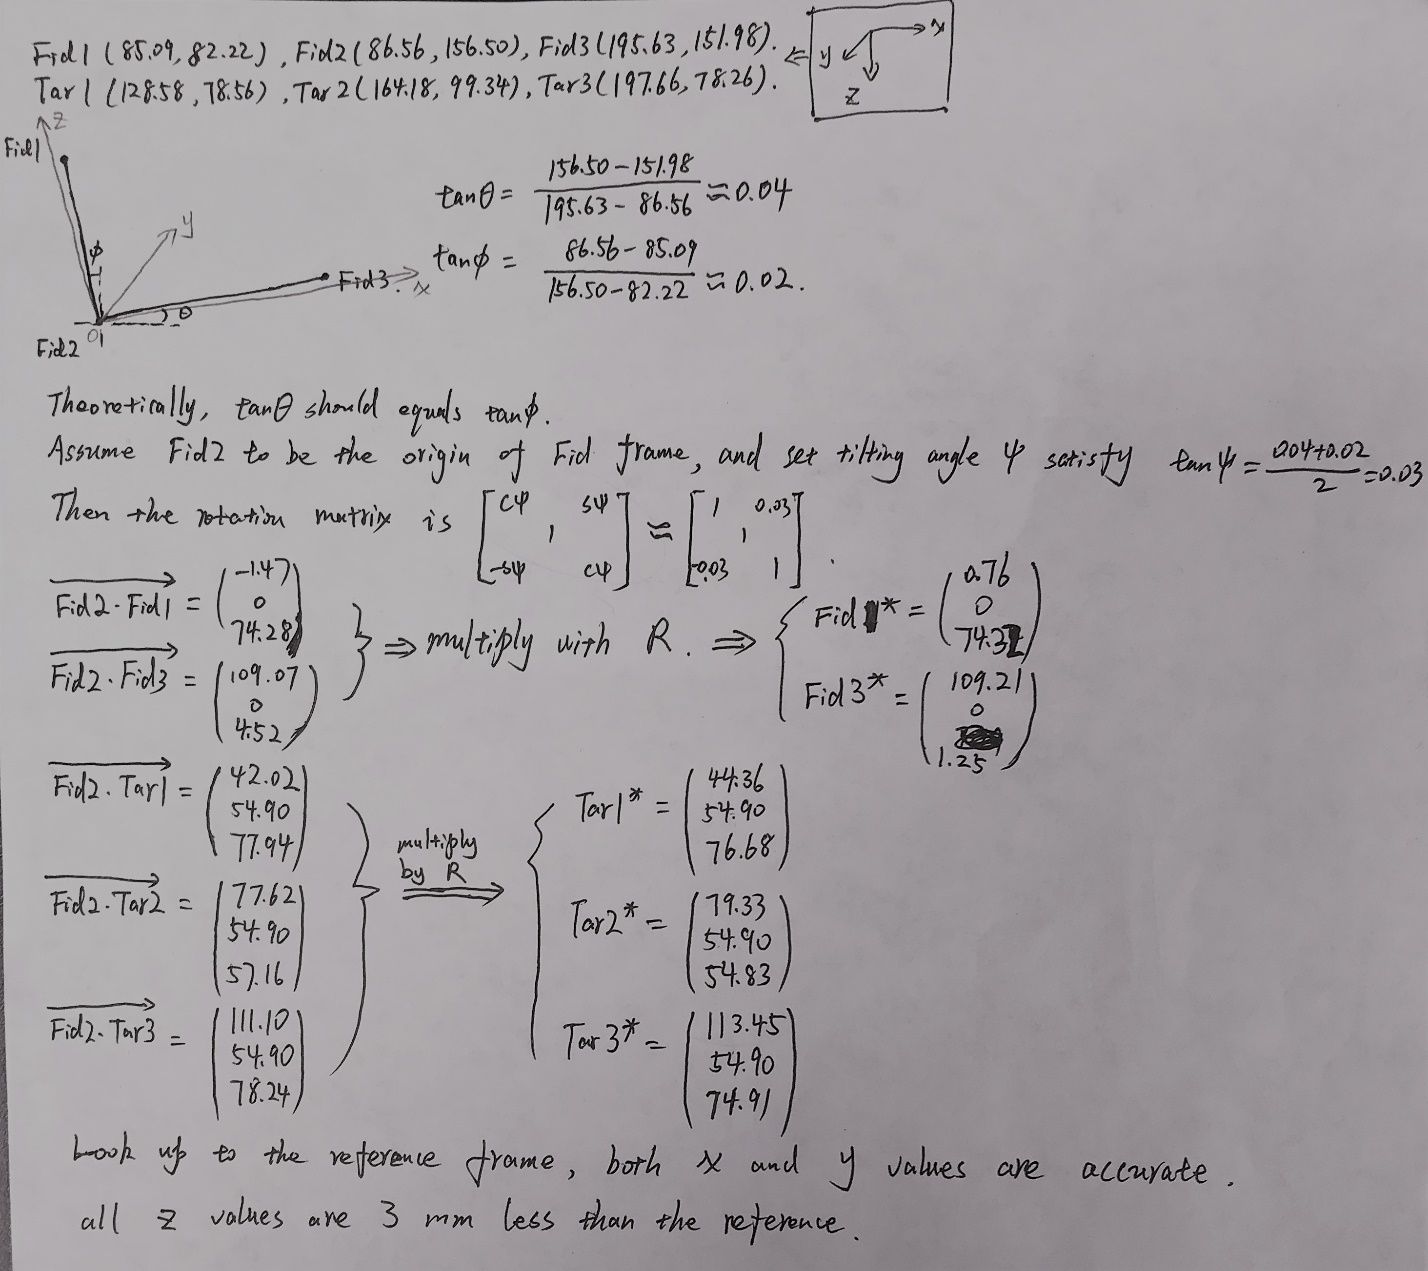 Fid1 (85.09, 82.22), Fid2(86.56, 156.50), Fid3(195.63, 151.98). ⇐
Tar1 (128.58, 78.56), Tar2(164.18, 99.34), Tar3(197.66, 78.26).
x
y
z
Fid1
z
y
ϕ
Fid3.
x
θ
O1
Fid2
tanθ = (156.50-151.98)/(195.63-86.56) ≈ 0.04
tanϕ = (86.56-85.09)/(156.50-82.22) ≈ 0.02.
Theoretically, tanθ should equals tanϕ.
Assume Fid2 to be the origin of Fid frame, and set tilting angle ψ satisfy tanψ = (0.04+0.02)/2 = 0.03
Then the rotation matrix is [cψ sψ; 1; -sψ cψ] ≈ [1 0.03; 1; -0.03 1].
Fid2·Fid1 = (-1.47, 0, 74.28)
Fid2·Fid3 = (109.07, 0, 4.52)
⇒ multiply with R. ⇒
Fid1* = (0.76, 0, 74.32)
Fid3* = (109.21, 0, 1.25)
Fid2·Tar1 = (42.02, 54.90, 77.94)
Fid2·Tar2 = (77.62, 54.90, 57.16)
Fid2·Tar3 = (111.10, 54.90, 78.24)
multiply
by R
Tar1* = (44.36, 54.90, 76.68)
Tar2* = (79.33, 54.90, 54.83)
Tar3* = (113.45, 54.90, 74.91)
Look up to the reference frame, both x and y values are accurate.
all z values are 3 mm less than the reference.